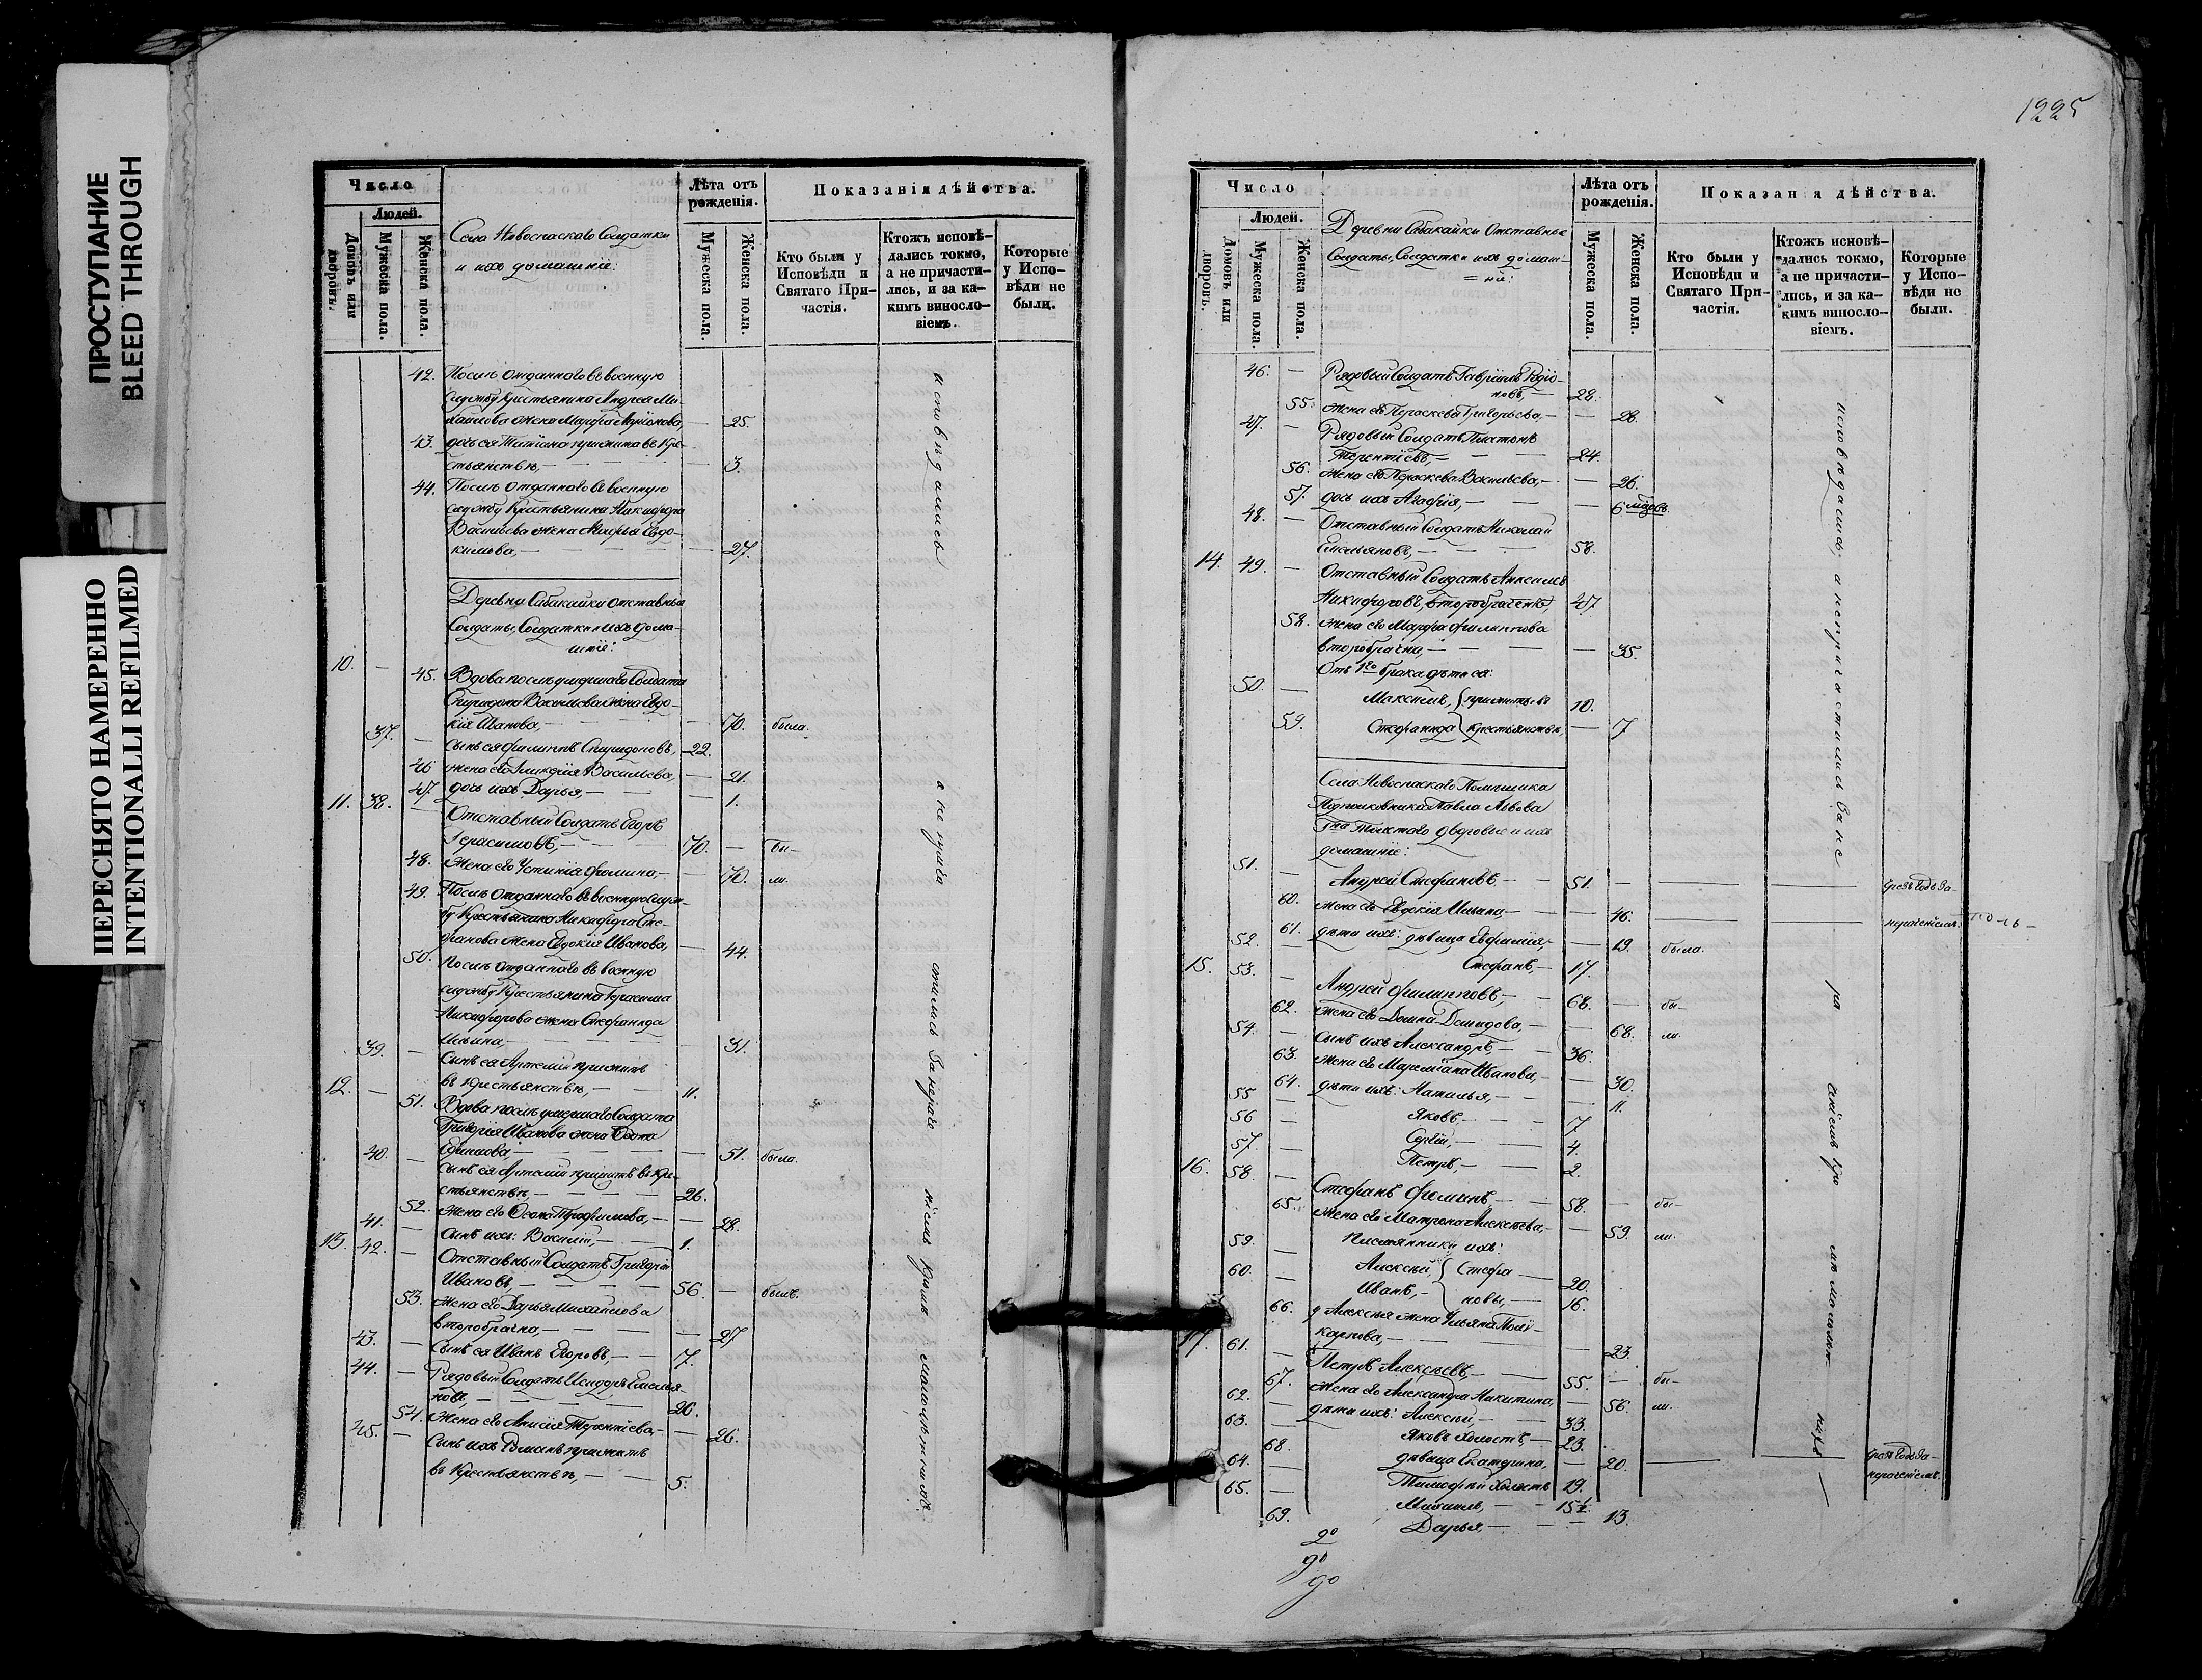 ПРОСТУПАНИЕ
BLEED THROUGH
ПЕРЕСНЯТО НАМЕРЕННО
INTENTIONALLI REFILMED
Число
Людей.
Домовъ или дворовъ.
Мужеска пола.
Женска пола.
Села Новоспаскаго Солдатки
и ихъ домашнiе:
Лѣта отъ рожденія.
Мужеска пола.
Женска пола.
Показанія дѣйства.
Кто были у Исповѣди и Святаго Причастія.
Ктожъ исповѣдались токмо, а не причастились, и за какимъ винословіемъ.
Которые у Исповѣди не были.
42. Послѣ отданнаго въ военную
службу Крестьянина Андрея Ми-
хайлова жена Марфа — 25.
43. дочь ея Татіана прижита въ Кре-
стьянствѣ, — 3.
44. Послѣ отданнаго въ военную
службу Крестьянина Никифора
Васильева жена Марфа Евдо-
кимова, — 27.
Деревни Сабакайки отставные
Солдаты, Солдатки и ихъ дома-
шніе:
10. — 45. Вдова послѣ умершаго Солдата
Спиридона Васильева жена Евдо-
кія Иванова, — 70. была.
37. — Сынъ ея Филиппъ Спиридоновъ, 22.
46 жена его Гликерія Васильева, — 21.
47 дочь ихъ Дарья, — 1.
11. 38. — Отставный Солдатъ Егоръ
Герасимовъ, — 70. — бы-
48. Жена его Устинія Фомина, — 70. ли.
49. Послѣ отданнаго въ военную служ-
бу Крестьянина Никифора Сте-
фанова жена Евдокія Иванова, — 44.
50. Послѣ отданнаго въ военную
службу Крестьянина Герасима
Никифорова жена Стефанида
Ильина, — 31.
39. — Сынъ ея Артемій прижитъ
въ крестьянствѣ, — 11.
12. — 51. Вдова послѣ умершаго Солдата
Григорія Иванова жена
Ефимова, — 51. была.
40. — Сынъ ея Артемій прижитъ въ Кре-
стьянствѣ, — 26.
52. Жена его Трофимова, — 28.
41. — Сынъ ихъ: Василій, — 1.
13. 42. — Отставный Солдатъ Григорій
Ивановъ, — 56. — былъ.
53. Жена его Дарья Михайлова
второбрачна, — 27
43. — Сынъ ея Иванъ Егоровъ, — 7.
44. — Рядовый Солдатъ Исидоръ Емелья-
новъ, — 26.
54. Жена его Анисія Терентіева, — 26.
45. — Сынъ ихъ Романъ прижитъ
въ Крестьянствѣ, — 5.
исповѣдались а не причастились за нераченіемъ кромѣ малолѣтныхъ.
1225
Число
Людей.
Домовъ или дворовъ.
Мужеска пола.
Женска пола.
Деревни Сабакайки Отставные
Солдаты, Солдатки ихъ домаш-
= ніе:
Лѣта отъ рожденія.
Мужеска пола.
Женска пола.
Показанія дѣйства.
Кто были у Исповѣди и Святаго Причастія.
Ктожъ исповѣдались токмо, а не причастились, и за какимъ винословіемъ.
Которые у Исповѣди не были.
46. — Рядовый Солдатъ Гавріилъ Родіо-
новъ, — 28.
55. Жена его Параскева Григорьева, — 28.
47. — Рядовый Солдатъ Платонъ
Терентіевъ, — 24.
56. Жена его Параскева Васильева, — 26.
57. дочь ихъ Агафія, — 6 мѣсяцовъ.
48. — Отставный Солдатъ Николай
Емельяновъ, — 58.
14. 49. — Отставный Солдатъ Алексѣй
Никифоровъ, второбраченъ, 47
58. Жена его Марфа Филиппова
второбрачна, — 35.
Отъ 1го брака дѣти ея:
50. — Максимъ, прижиты въ 10.
59. Стефанида Крестьянствѣ, — 7
Села Новоспаскаго Помѣщика
Подполковника Павла Львова
Гна Толстаго дворовые и ихъ
домашніе:
51. — Андрей Стефановъ — 51. — чрезъ годъ за-
60. Жена его Евдокія Ильина, — 46. — нераченіемъ.
61. дѣти ихъ: дѣвица Евфимія, — 19. была.
52. — Стефанъ, — 17.
15. 53. — Андрей Филипповъ, — 68. — бы-
62. Жена его Домна Демидова, — 68. ли.
54. — Сынъ ихъ Александръ, — 36.
63. Жена его Маремiана Иванова, — 30.
64. дѣти ихъ: Наталья, — 11.
55 — Яковъ, — 7
56 — Сергѣй, — 4.
57. — Петръ, — 2.
16. 58. — Стефанъ Фоминъ, — 58. — бы-
65. Жена его Матрона Алексѣева, — 59. ли.
Племянники ихъ:
59. — Алексѣй, Стефа- 20.
60. — Иванъ, — новы, — 16.
66. у Алексѣя жена Ульяна Поли-
карпова, — 23.
17. 61. — Петръ Алексѣевъ, — 55. — бы-
67. Жена его Александра Никитина, — 56. ли.
62. — дѣти ихъ: Алексѣй, — 33.
63. — Яковъ холостъ, — 23.
68. дѣвица Екатерина, — 20. — чрезъ годъ за-
нераченіемъ.
64. — Тимофѣй холостъ 19.
65. — Михаилъ, — 15½.
69. Дарья, — 13.
исповѣдались, а не причастились за нераченіемъ кромѣ малолѣтныхъ